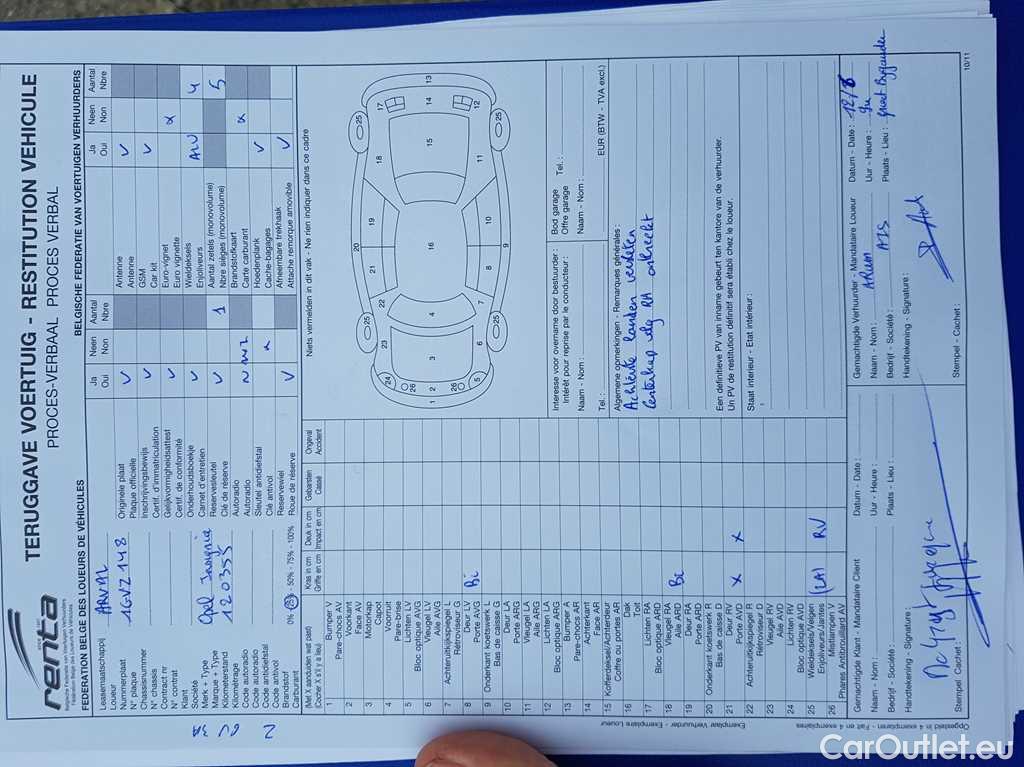 renta
SINCE 1956
Belgische Federatie van Voertuigen Verhuurders
Fédération Belge des Loueurs de Véhicules
TERUGGAVE VOERTUIG - RESTITUTION VEHICULE
PROCES-VERBAAL PROCES VERBAL
FEDERATION BELGE DES LOUEURS DE VÉHICULES
BELGISCHE FEDERATIE VAN VOERTUIGEN VERHUURDERS
Leasemaatschappij
Loueur : ARVAL
Nummerplaat
N° plaque : 1GVZ148
Chassisnummer
N° chassis
Contract nr
N° contrat
Klant
Société
Merk + Type
Marque + Type : Opel Insignia
Kilometerstand
Kilométrage : 120355
Code autoradio
Code autoradio
Code antidiefstal
Code antivol
Brandstof
Carburant
0% - 25% - 50% - 75% - 100%
Ja Neen Aantal
Oui Non Nbre
Originele plaat V
Plaque officielle
Inschrijvingsbewijs V
Certif. d'immatriculation
Gelijkvormigheidsattest V
Certif. de conformité
Onderhoudsboekje V
Carnet d'entretien
Reservesleutel V 1
Clé de réserve
Autoradio
Autoradio
Sleutel antidiefstal
Clé antivol
Reservewiel V
Roue de réserve
Ja Neen Aantal
Oui Non Nbre
Antenne V
Antenne
GSM V
Car kit
Euro-vignet
Euro vignette
Wieldeksels ALU 4
Enjoliveurs
Aantal zetels (monovolume) 5
Nbre sièges (monovolume)
Brandstofkaart
Carte carburant
Hoedenplank V
Cache-bagages
Afneembare trekhaak V
Attache remorque amovible
(Met X aanduiden wat past)
(Cocher X s'il y a lieu)
Kras in cm
Griffe en cm
Deuk in cm
Impact en cm
Gebarsten
Cassé
Ongeval
Accident
1 Bumper V
Pare-chocs AV
2 Voorkant
Face AV
3 Motorkap
Capot
4 Voorruit
Pare-brise
5 Lichten LV
Bloc optique AVG
6 Vleugel LV
Aile AVG
7 Achteruitkijkspiegel L
Rétroviseur G
8 Deur LV Bi
Porte AVG
9 Onderkant koetswerk L
Bas de caisse G
10 Deur LA
Porte ARG
11 Vleugel LA
Aile ARG
12 Lichten LA
Bloc optique ARG
13 Bumper A
Pare-chocs AR
14 Achterkant
Face AR
15 Kofferdeksel/Achterdeur
Coffre ou portes AR
16 Dak
Toit
17 Lichten RA
Bloc optique ARD
18 Vleugel RA Bi
Aile ARD
19 Deur RA
Porte ARD
20 Onderkant koetswerk R
Bas de caisse D
21 Deur RV X X
Porte AVD
22 Achteruitkijkspiegel R
Rétroviseur D
23 Vleugel RV
Aile AVD
24 Lichten RV
Bloc optique AVD
25 Wieldeksels/Velgen (LA) RV
Enjoliveurs/Jantes
26 Mistlampen V
Phares Antibrouillard AV
Niets vermelden in dit vak - Ne rien indiquer dans ce cadre
Interesse voor overname door bestuurder :
Intérêt pour reprise par le conducteur :
Naam - Nom :
Tel. :
Bod garage
Offre garage Tel. :
Naam - Nom :
EUR (BTW - TVA excl.)
Algemene opmerkingen - Remarques générales :
Achterste banden versleten
Centerkap velg RA ontbreekt
Een definitieve PV van inname gebeurt ten kantore van de verhuurder.
Un PV de restitution définitif sera établi chez le loueur.
Staat interieur - Etat intérieur :
Gemachtigde Klant - Mandataire Client
Naam - Nom :
Bedrijf - Société :
Handtekening - Signature :
Stempel - Cachet :
Datum - Date :
Uur - Heure :
Plaats - Lieu :
Gemachtigde Verhuurder - Mandataire Loueur
Naam - Nom :
Bedrijf - Société : ATS
Handtekening - Signature :
Stempel - Cachet :
Datum - Date : 12/8
Uur - Heure :
Plaats - Lieu : Groot Bijgaarden
Opgesteld in 4 exemplaren - Fait en 4 exemplaires
Exemplaar Verhuurder - Exemplaire Loueur
10/11
CarOutlet.eu